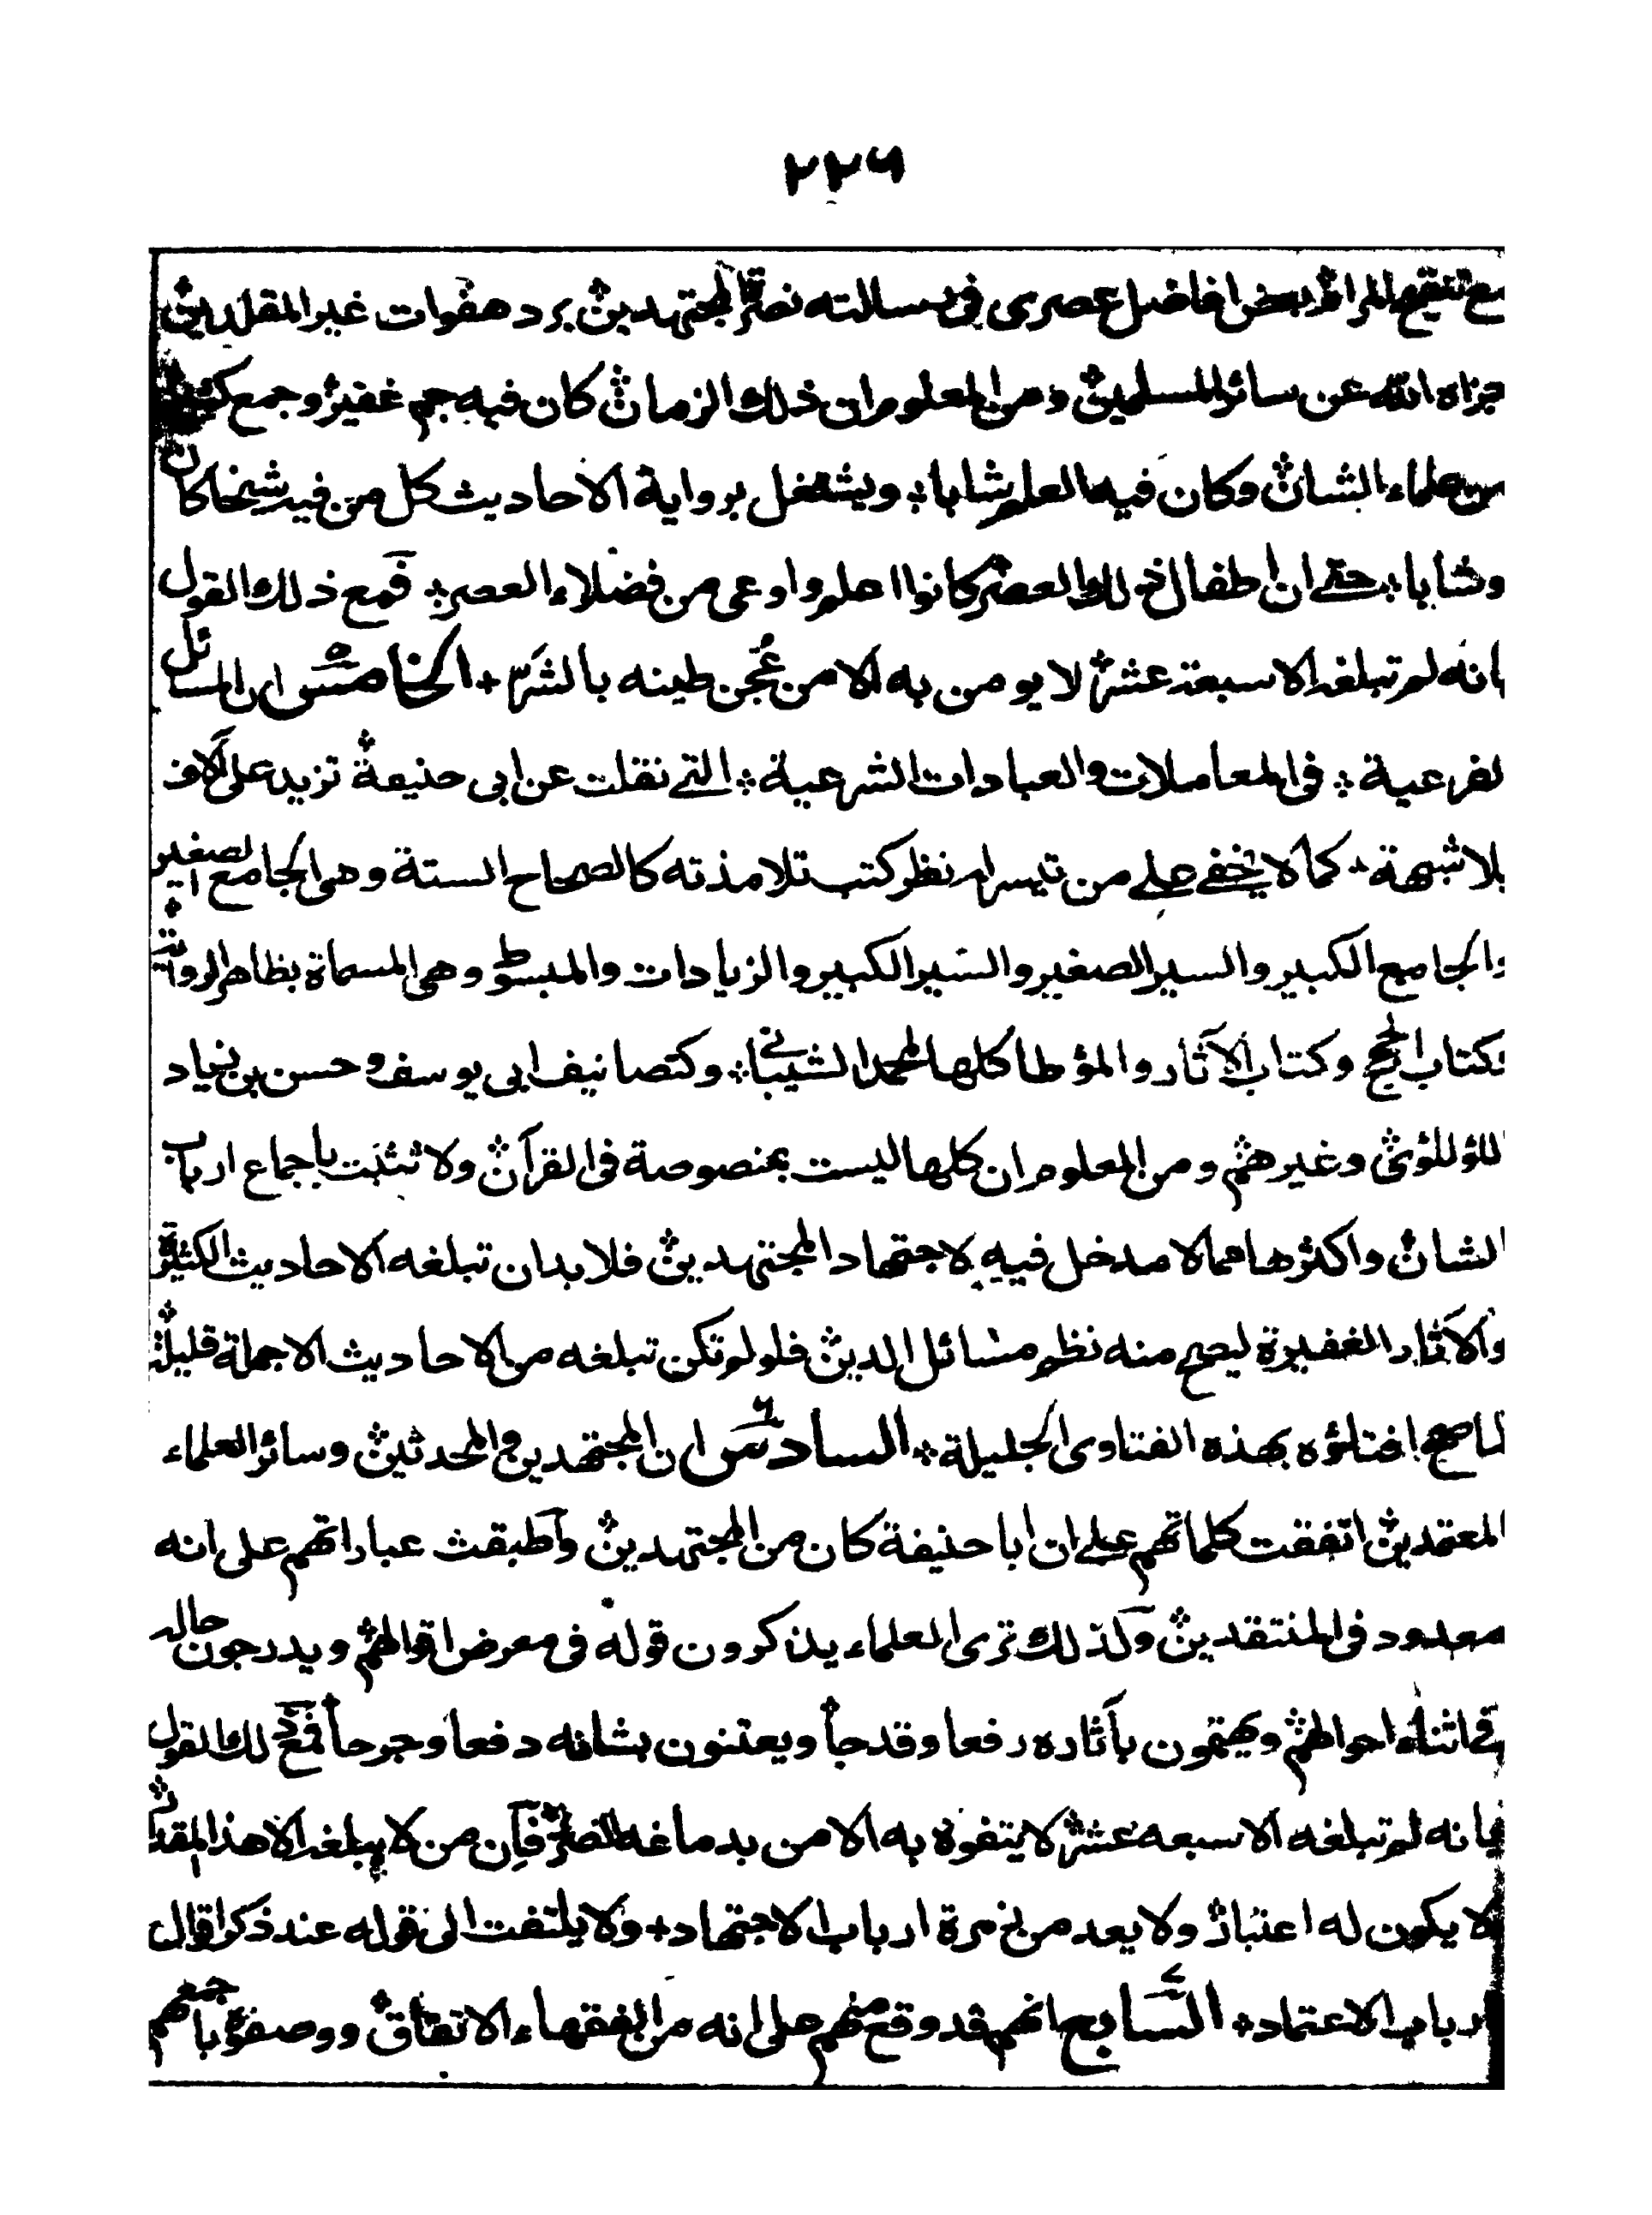 ٢٢٦
مع تنقيح المرام بعض افاضل عصرى فى رسالته نصرة المجتهدين برد هفوات غير المقلدين
جزاه الله عن سائر المسلمين ومن المعلوم ان ذلك الزمان كان فيه جم غفير وجمع كثير
من علماء الشان وكان فيه العلم شابا ويشتغل برواية الاحاديث كل من فيه شيخا كان
وشابا حتے ان اطفال ذلك العصر كانوا اعلم واوعى من فضلاء العصر فمع ذلك القول
بانه لم تبلغه الا سبعة عشر لا يومن به الا من عُجن طينه بالشر + الخامس ٥ ان المسائل
الفرعية فى المعاملات والعبادات الشرعية التے نقلت عن ابى حنيفة تزيد على آلاف
بلا شبهة كما لا يخفے علے من تيسر له نظر كتب تلامذته كالصحاح الستة وهى الجامع الصغير
والجامع الكبير والسير الصغير والسير الكبير والزيادات والمبسوط وهى المسماة بظاهر الرواية
وكتاب الحجج وكتاب الآثار والمؤطا كلها لمحمد الشيبانے وكتصانيف ابى يوسف وحسن بن زياد
اللؤلؤى وغيرهم ومن المعلوم ان كلها ليست بمنصوصة فى القرآن ولا تثبت باجماع ارباب
الشان واكثرها مما لا مدخل فيه لاجتهاد المجتهدين فلا بد ان تبلغه الاحاديث الكثيرة
والآثار الغفيرة ليصح منه نظم مسائل الدين فلو لم تكن تبلغه من الاحاديث الا جملة قليلة
لما صح افتاؤه بهذه الفتاوى الجليلة السادس ٦ ان المجتهدين والمحدثين وسائر العلماء
المعتمدين اتفقت كلماتهم علے ان ابا حنيفة كان من المجتهدين وأطبقت عباراتهم على انه
معدود فى المنتقدين ولذلك ترى العلماء يذكرون قوله فى معرض اقوالهم ويدرجون حاله
فے اثناء احوالهم ويهتمون بآثاره رفعا وقدحا ويعتنون بشانه دفعا وجرحا فمع ذلك القول
بانه لم تبلغه الا سبعه عشر لا يتفوه به الا من بدماغه الضر فان من لا يبلغه الا هذا المقدار
لا يكون له اعتبار ولا يعد من زمرة ارباب الاجتهاد + ولا يلتفت الى قوله عند ذكر اقوال
ارباب الاعتماد + السابع ٧ انهم قد وقع منهم على انه من الفقهاء الاتفاق ووصفوه باجمعهم